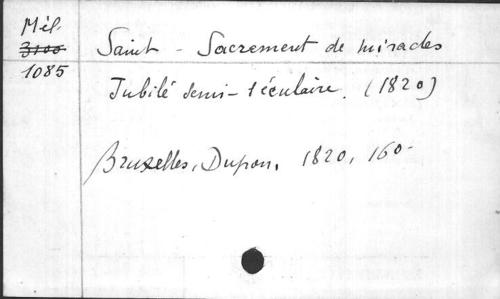 Mél.
3100
1085
Saint - Sacrement de miracles
Jubilé semi-séculaire. (1820)
Bruxelles, Dupon, 1820, 16o-